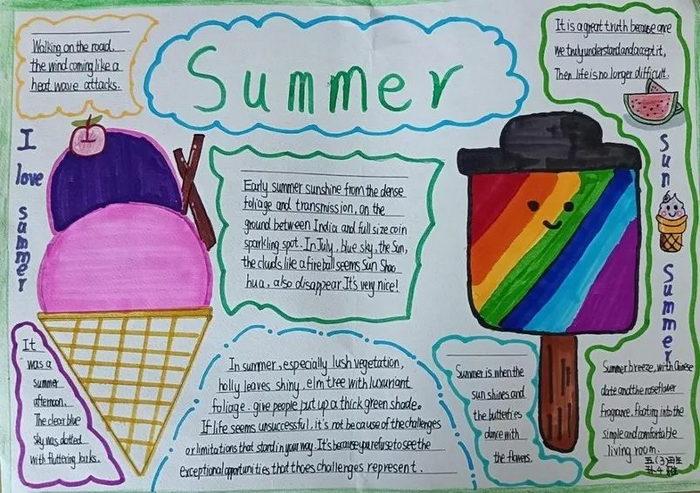 Summer
Walking on the road,
the wind coming like a
heat wave attacks.
It is a great truth because once
we truly understand and accept it,
Then life is no longer difficult.
I
love
summer
Early summer sunshine from the dense
foliage and transmission, on the
ground between India and full size coin
sparkling spot. In July, blue sky, the Sun,
the clouds like a fire ball seems Sun Shao
hua, also disappear. It's very nice!
Sun
Summer
It
was a
summer
afternoon.
The clear blue
sky was dotted
with fluttering larks.
In summer, especially lush vegetation,
holly leaves shiny, elm tree with luxuriant
foliage. give people put up a thick green shade.
If life seems unsuccessful, it's not because of the challenges
or limitations that stand in your way. It's because you refuse to see the
exceptional opportunities that thoes challenges represent.
Summer is when the
sun shines and
the butterflies
dance with
the flowers.
Summer breeze, with Chinese
date and the rose flower
fragrance, floating into the
simple and comfortable
living room.
五(3)班